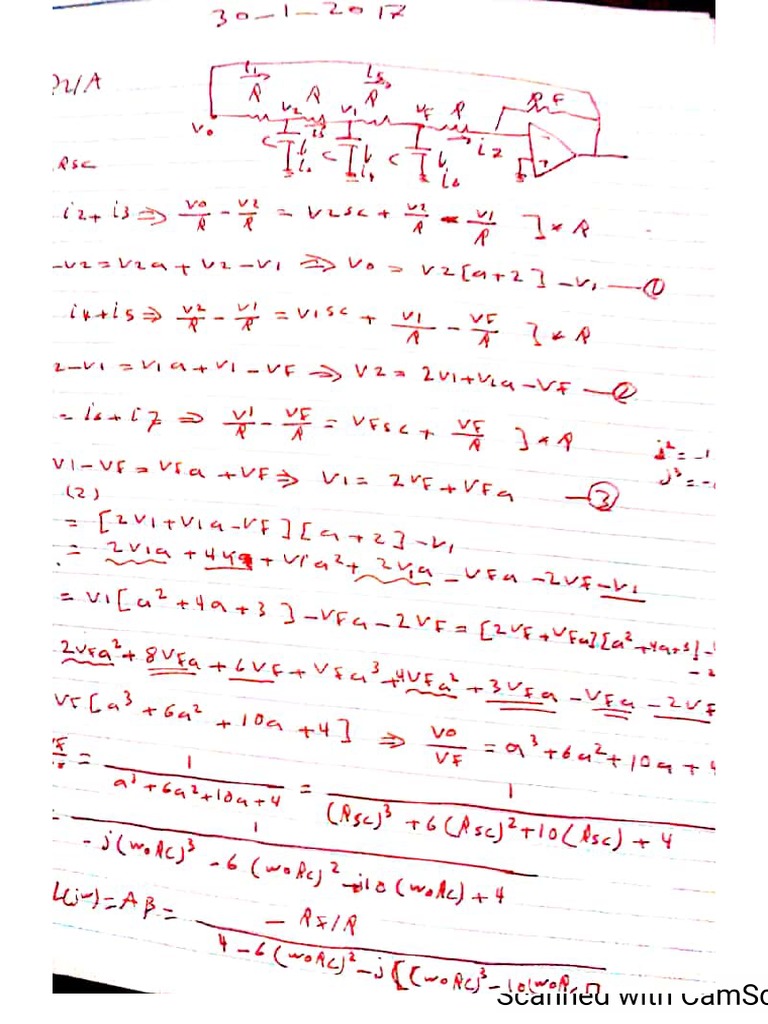 30-1-2017
2/A
i1 i5
R R R R RF
V2 V1 VF
Vo i3 i2
C C C
i4 i6
RSC
i2+i3 ⇒ Vo/R - V2/R = V2SC + V2/R - V1/R ] * R
-V2 = V2a + V2 - V1 ⇒ Vo = V2[a+2] - V1 —①
i4+i5 ⇒ V2/R - V1/R = V1SC + V1/R - VF/R } * R
2-V1 = V1a + V1 - VF ⇒ V2 = 2V1+V1a-VF —②
= i6+i7 ⇒ V1/R - VF/R = VFSC + VF/R ] * R
j² = -1
j³ = -
V1-VF = VFa + VF ⇒ V1 = 2VF+VFa —③
(2)
= [2V1+V1a-VF][a+2]-V1
= 2V1a + 4V1 + V1a² + 2V1a - VFa - 2VF - V1
= V1[a²+4a+3] - VFa - 2VF = [2VF+VFa][a²+4a+3]-
- 2
2VFa² + 8VFa + 6VF + VFa³ + 4VFa² + 3VFa - VFa - 2VF
VF[a³ + 6a² + 10a + 4] ⇒ Vo/VF = a³+6a²+10a+4
= 1/(a³+6a²+10a+4) = 1/((RSC)³ + 6(RSC)² + 10(RSC) + 4)
1/(-j(woRC)³ - 6(woRC)² + j10(woRC) + 4)
L(jw) = AB = - RF/R / (4 - 6(woRC)² - j[(woRC)³ - 10(woRC)
Scanned with CamSc